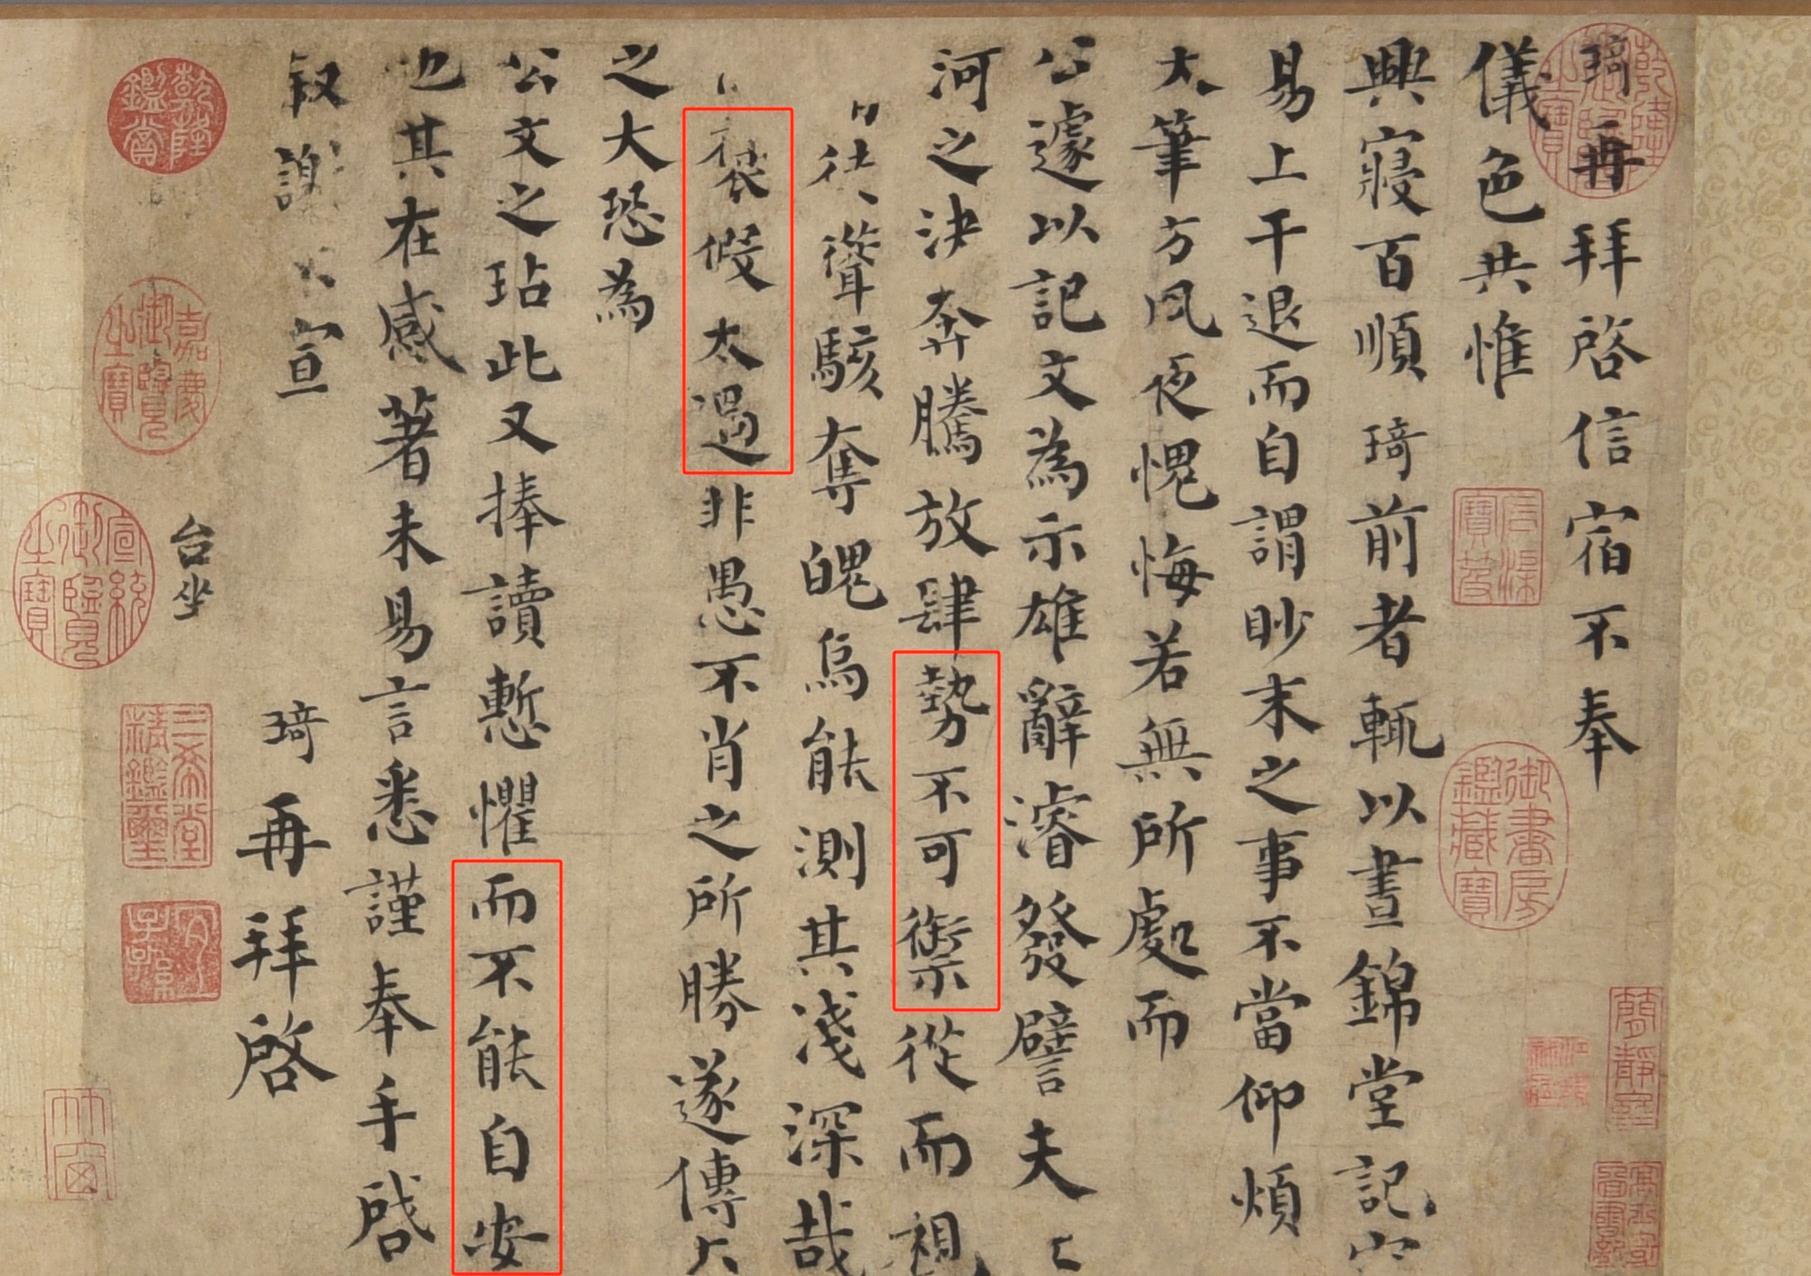 琦再拜啓信宿不奉
儀色共惟
興寢百順琦前者輒以晝錦堂記
易上干退而自謂眇末之事不當仰煩
大筆方夙夜愧悔若無所處而
公遽以記文為示雄辭濬發譬夫
河之決奔騰放肆勢不可禦從而視
徒聳駭奪魄烏能測其淺深哉
襃假太過非愚不肖之所勝遂傳
之大恐為
公文之玷此又捧讀慙懼而不能自安
也其在感著未易言悉謹奉手啓
叙謝 宣
琦再拜啓
台坐
乾隆鑑賞
嘉慶御覽之寶
宣統御覽之寶
三希堂精鑑璽
宜子孫
乾隆御覽之寶
御書房鑑藏寶